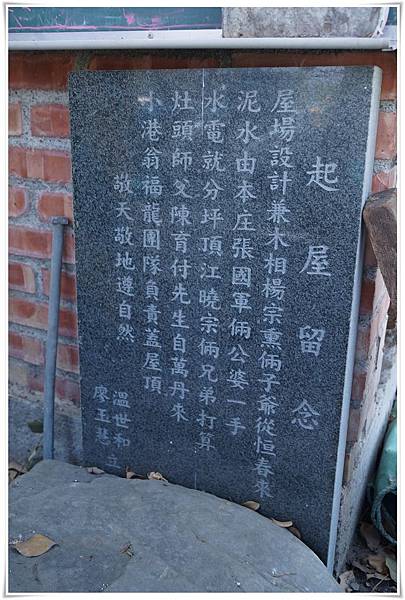 起屋留念
屋場設計兼木相楊宗熏倆子爺從恒春來
泥水由本庄張國軍倆公婆一手
水電就分坪頂江曉宗倆兄弟打算
灶頭師父陳育付先生自萬丹來
小港翁福龍團隊負責蓋屋頂
敬天敬地遵自然
溫世和
廖玉 立